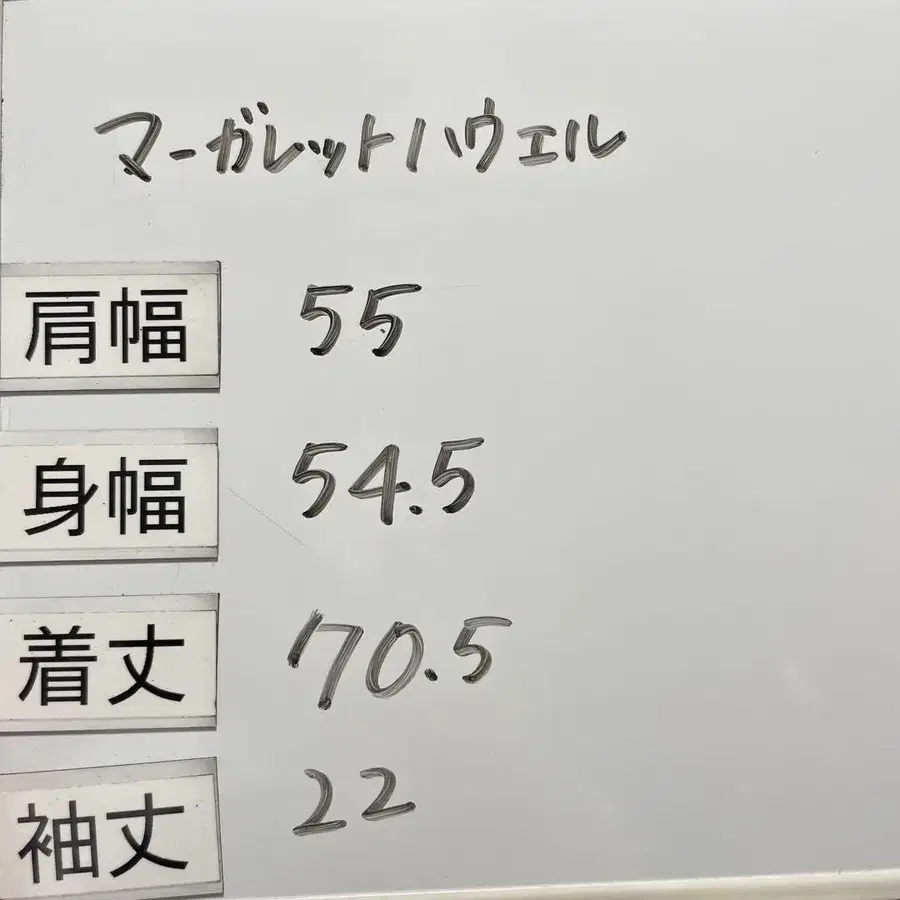 マーガレットハウエル
肩幅 55
身幅 54.5
着丈 70.5
袖丈 22